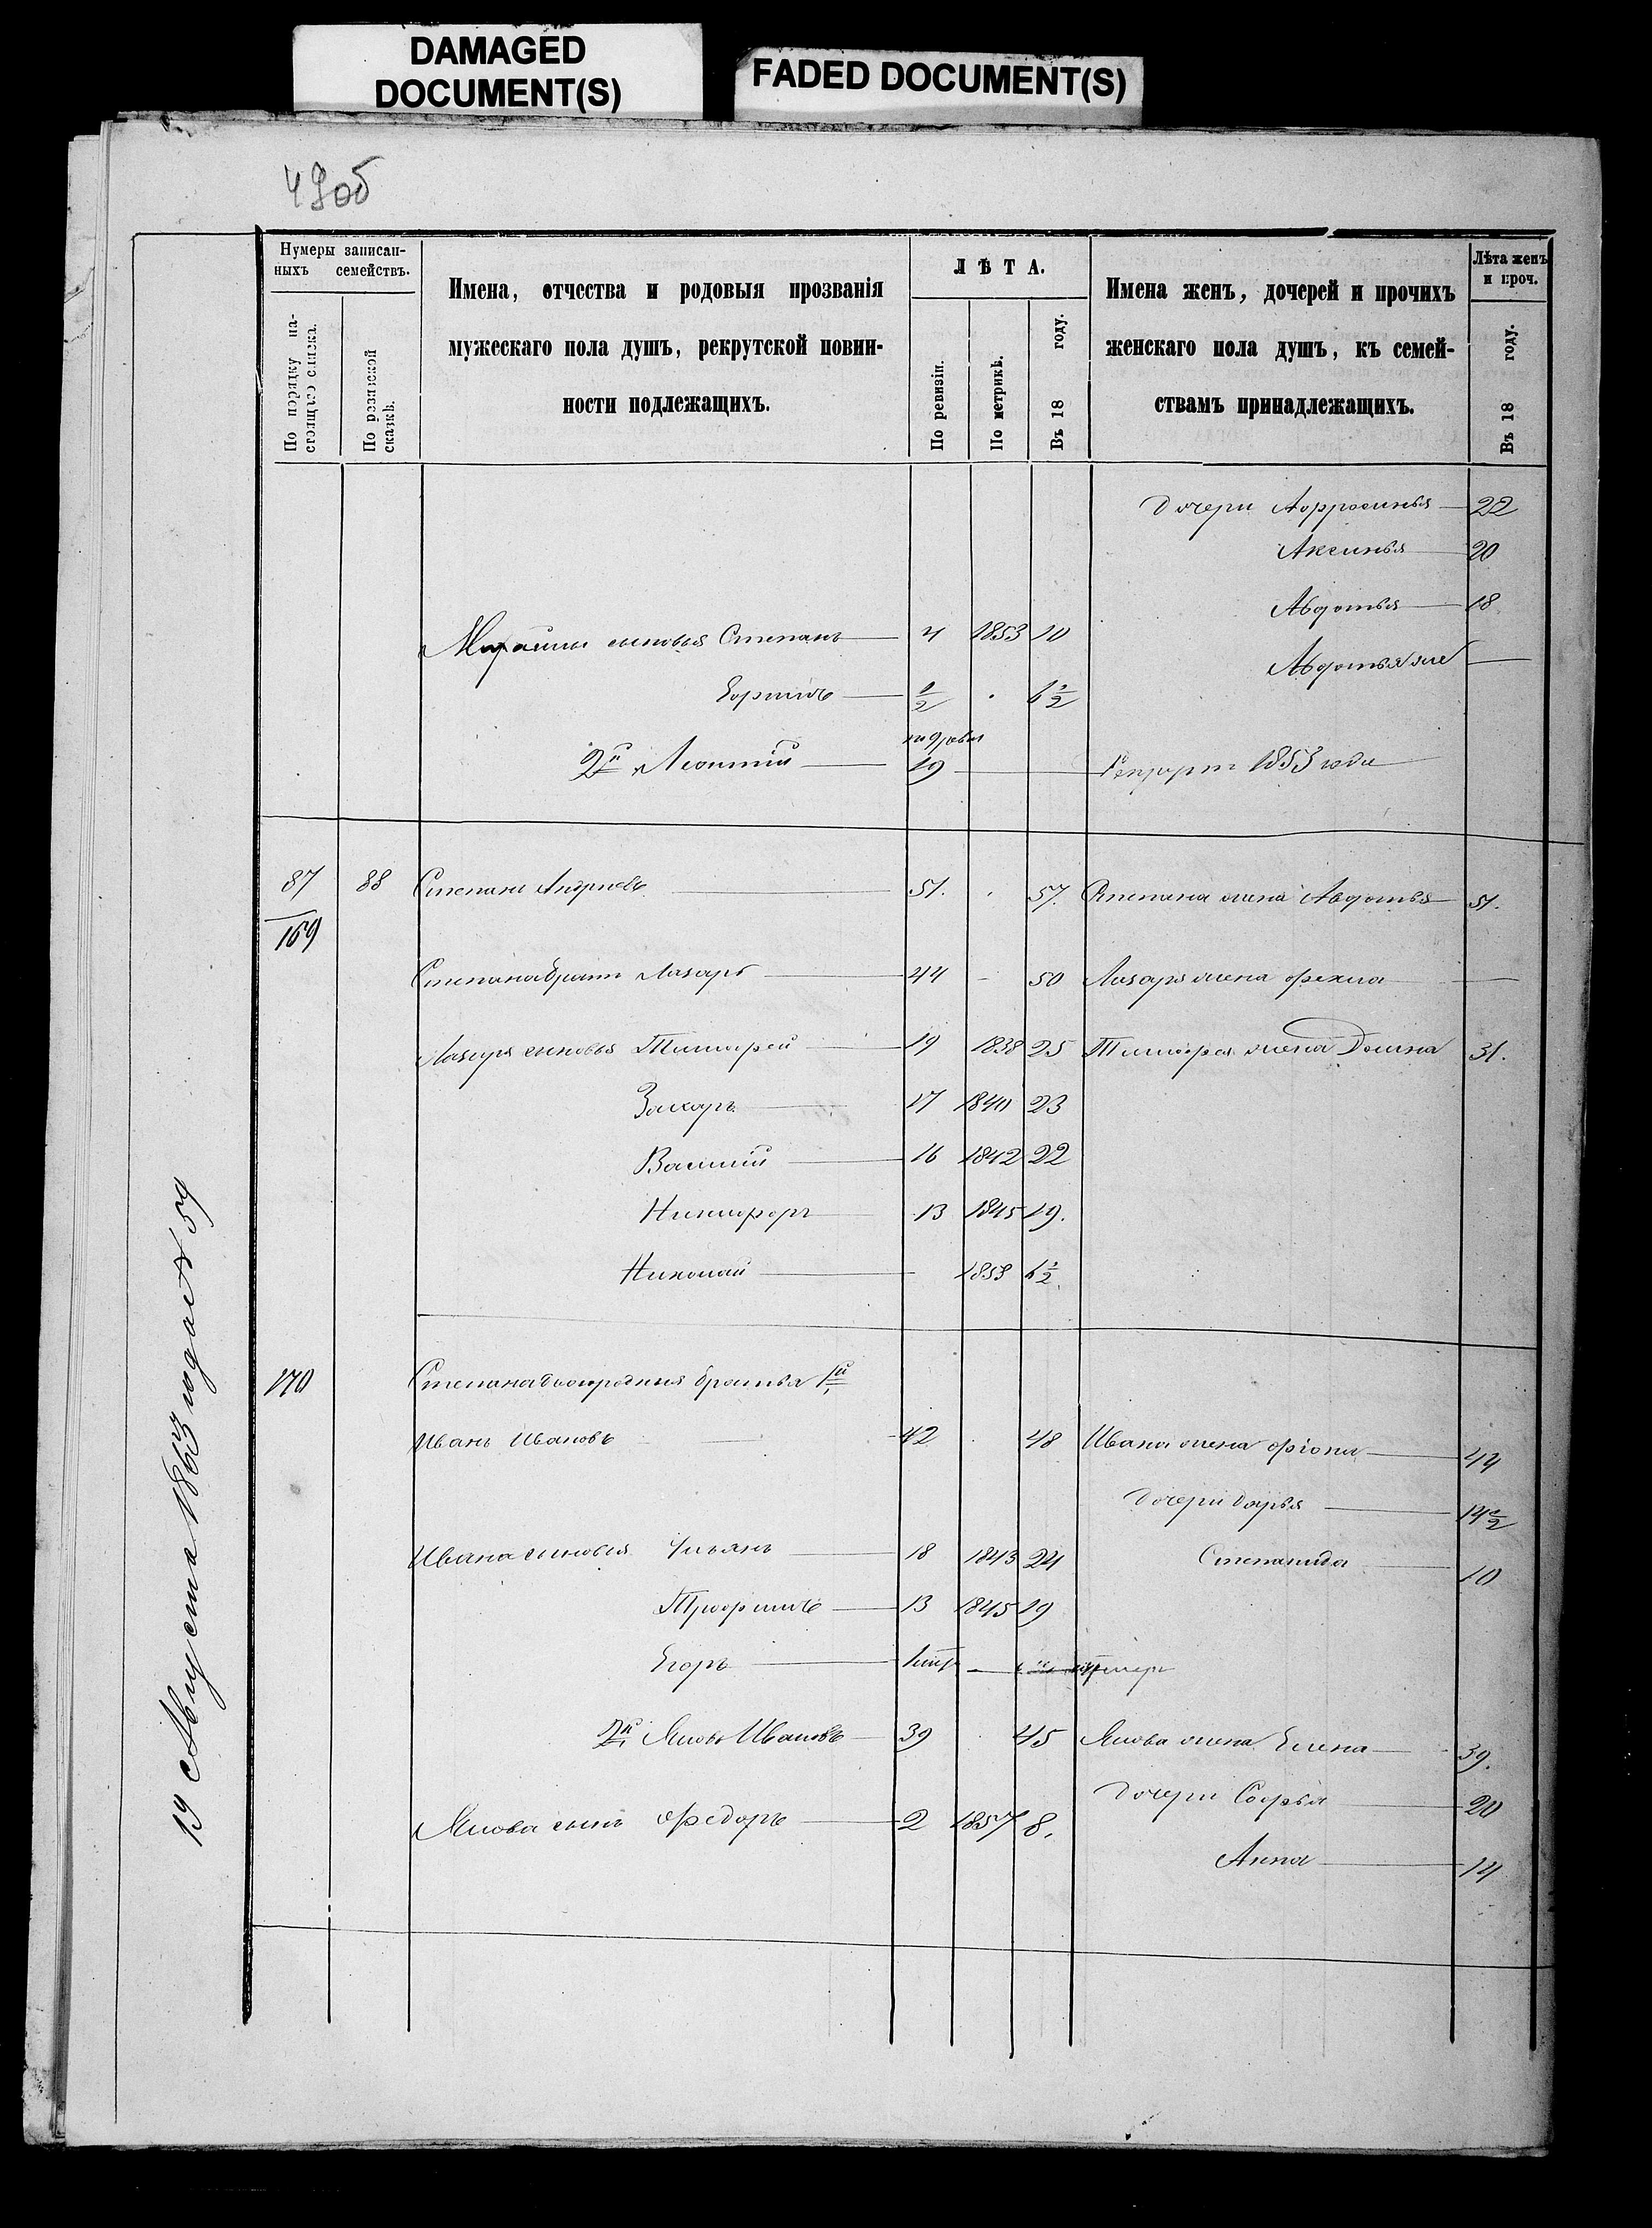 DAMAGED
DOCUMENT(S)
FADED DOCUMENT(S)
49об
Нумеры записан-
ныхъ семействъ.
По порядку на-
стоящаго списка.
По ревизской
сказкѣ.
Имена, отчества и родовыя прозванія
мужескаго пола душъ, рекрутской повин-
ности подлежащихъ.
ЛѢТА.
По ревизіи.
По метрикѣ.
Въ 18 году.
Имена женъ, дочерей и прочихъ
женскаго пола душъ, къ семей-
ствамъ принадлежащихъ.
Лѣта женъ
и проч.
Въ 18 году.
Дочери Аофросинья 22
Аксинья 20
Авдотья 18
сыновья Степанъ 4 1853 10
Авдотья же —
Ефримъ 1/2 . 6 1/2
2й Леонтій 19 1853 года
87 88 Степанъ Андреевъ 51. . 57. Степана жена Авдотья 51.
169
Степана братъ Лазарь 44 - 50 Лазаря жена Фекла —
Лазаря сыновья Тимофей 19 1838 25 Тимофея жена Домна 31.
Захаръ 17 1840 23
Василій 16 1842 22
Никифоръ 13 1845 19.
Николай — 1858 6 1/2.
170 Степана двоюродныя братья 1й
Иванъ Ивановъ 42 . 48 Ивана жена Фіона 44
Дочери Дарья 14 1/2
Ивана сыновья Ульянъ 18 1843 24 Степанида 10
Трофимъ 13 1845 19
Егоръ — умеръ
2й Яковъ Ивановъ 39 . 45 Якова жена Елена 39.
Дочери Софья 20
Якова сынъ Федоръ 2 1857 8.
Анна 14
19 Августа 1863 года № 59